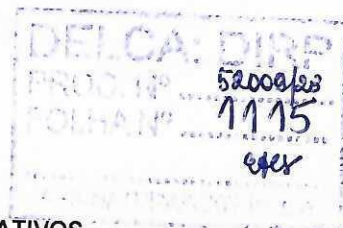 DELCA: DIRP
PROC. Nº 52009/23
FOLHA Nº 1115
ATIVOS